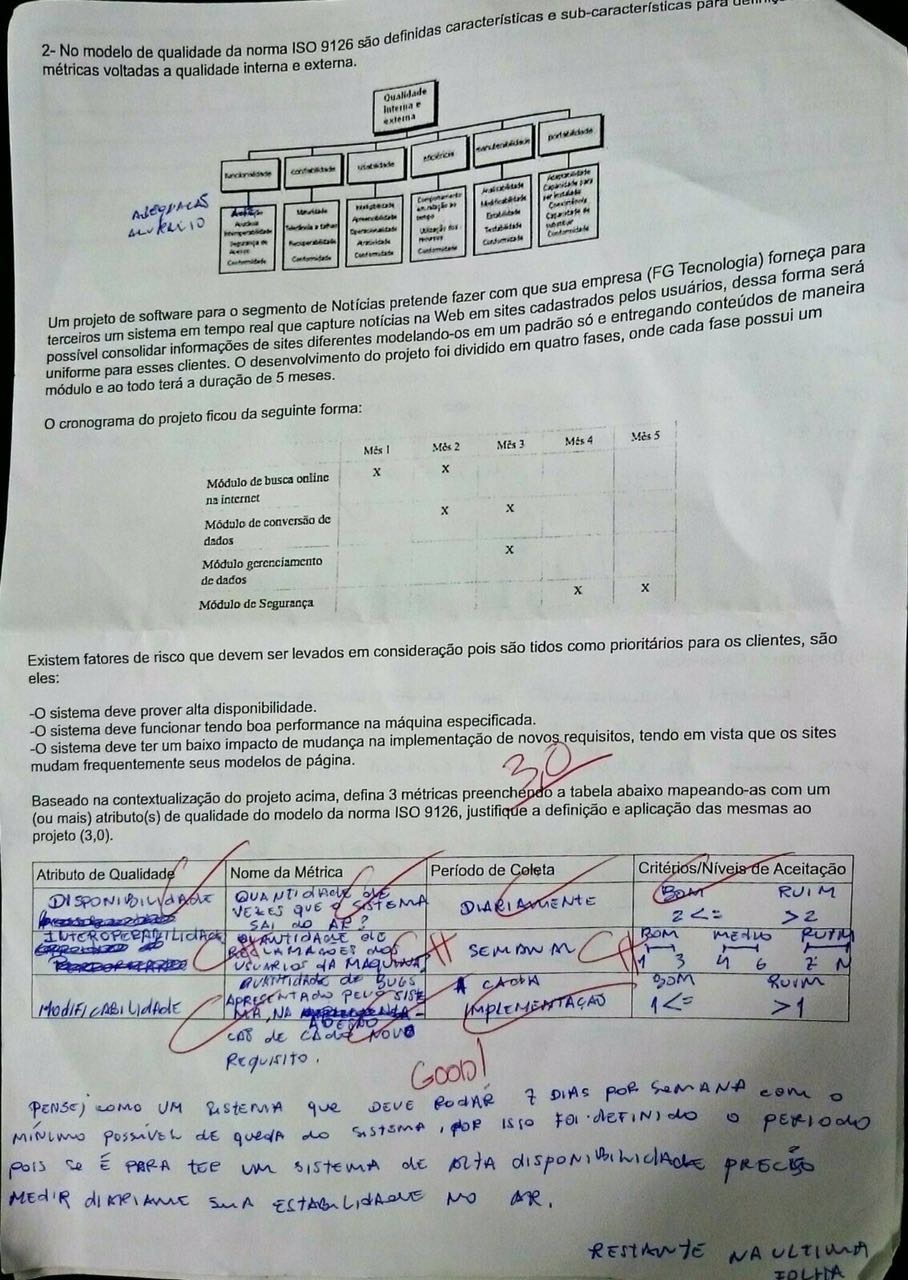 2- No modelo de qualidade da norma ISO 9126 são definidas características e sub-características para
métricas voltadas a qualidade interna e externa.
Qualidade
interna e
externa
funcionalidade
confiabilidade
usabilidade
eficiência
manutenibilidade
portabilidade
ADEQUAÇÃO
Acurácia
Interoperabilidade
Segurança de
Acesso
Conformidade
Maturidade
Tolerância a falhas
Recuperabilidade
Conformidade
Inteligibilidade
Apreensibilidade
Operacionalidade
Atratividade
Conformidade
Comportamento
em relação ao
tempo
Utilização dos
recursos
Conformidade
Analisabilidade
Modificabilidade
Estabilidade
Testabilidade
Conformidade
Adaptabilidade
Capacidade para
ser instalado
Coexistência
Capacidade de
substituir
Conformidade
Um projeto de software para o segmento de Notícias pretende fazer com que sua empresa (FG Tecnologia) forneça para
terceiros um sistema em tempo real que capture notícias na Web em sites cadastrados pelos usuários, dessa forma será
possível consolidar informações de sites diferentes modelando-os em um padrão só e entregando conteúdos de maneira
uniforme para esses clientes. O desenvolvimento do projeto foi dividido em quatro fases, onde cada fase possui um
módulo e ao todo terá a duração de 5 meses.
O cronograma do projeto ficou da seguinte forma:
Mês 1 Mês 2 Mês 3 Mês 4 Mês 5
Módulo de busca online x x
na internet
Módulo de conversão de x x
dados
Módulo gerenciamento x
de dados
Módulo de Segurança x x
Existem fatores de risco que devem ser levados em consideração pois são tidos como prioritários para os clientes, são
eles:
-O sistema deve prover alta disponibilidade.
-O sistema deve funcionar tendo boa performance na máquina especificada.
-O sistema deve ter um baixo impacto de mudança na implementação de novos requisitos, tendo em vista que os sites
mudam frequentemente seus modelos de página.
3,0
Baseado na contextualização do projeto acima, defina 3 métricas preenchendo a tabela abaixo mapeando-as com um
(ou mais) atributo(s) de qualidade do modelo da norma ISO 9126, justifique a definição e aplicação das mesmas ao
projeto (3,0).
Atributo de Qualidade Nome da Métrica Período de Coleta Critérios/Níveis de Aceitação
DISPONIBILIDADE
QUANTIDADE DE
VEZES QUE O SISTEMA
SAI DO AR?
DIARIAMENTE
BOM RUIM
2 <= >2
INTEROPERABILIDADE
QUANTIDADE DE
RECLAMAÇÕES DOS
USUÁRIOS DA MAQUINA
SEMANAL
BOM MEDIO RUIM
1 3 4 6 7 N
MODIFICABILIDADE
QUANTIDADE DE BUGS
APRESENTADO PELO SISTE
MA, NA
CAS DE CADA NOVO
REQUISITO.
A CADA
IMPLEMENTAÇÃO
BOM RUIM
1 <= >1
GOOD!
PENSEI COMO UM SISTEMA QUE DEVE RODAR 7 DIAS POR SEMANA COM O
MÍNIMO POSSÍVEL DE QUEDA DO SISTEMA, POR ISSO FOI DEFINIDO O PERIODO
POIS SE É PARA TER UM SISTEMA DE ALTA DISPONIBILIDADE PRECISO
MEDIR DIARIAME SUA ESTABILIDADE NO AR.
RESTANTE NA ULTIMA
FOLHA